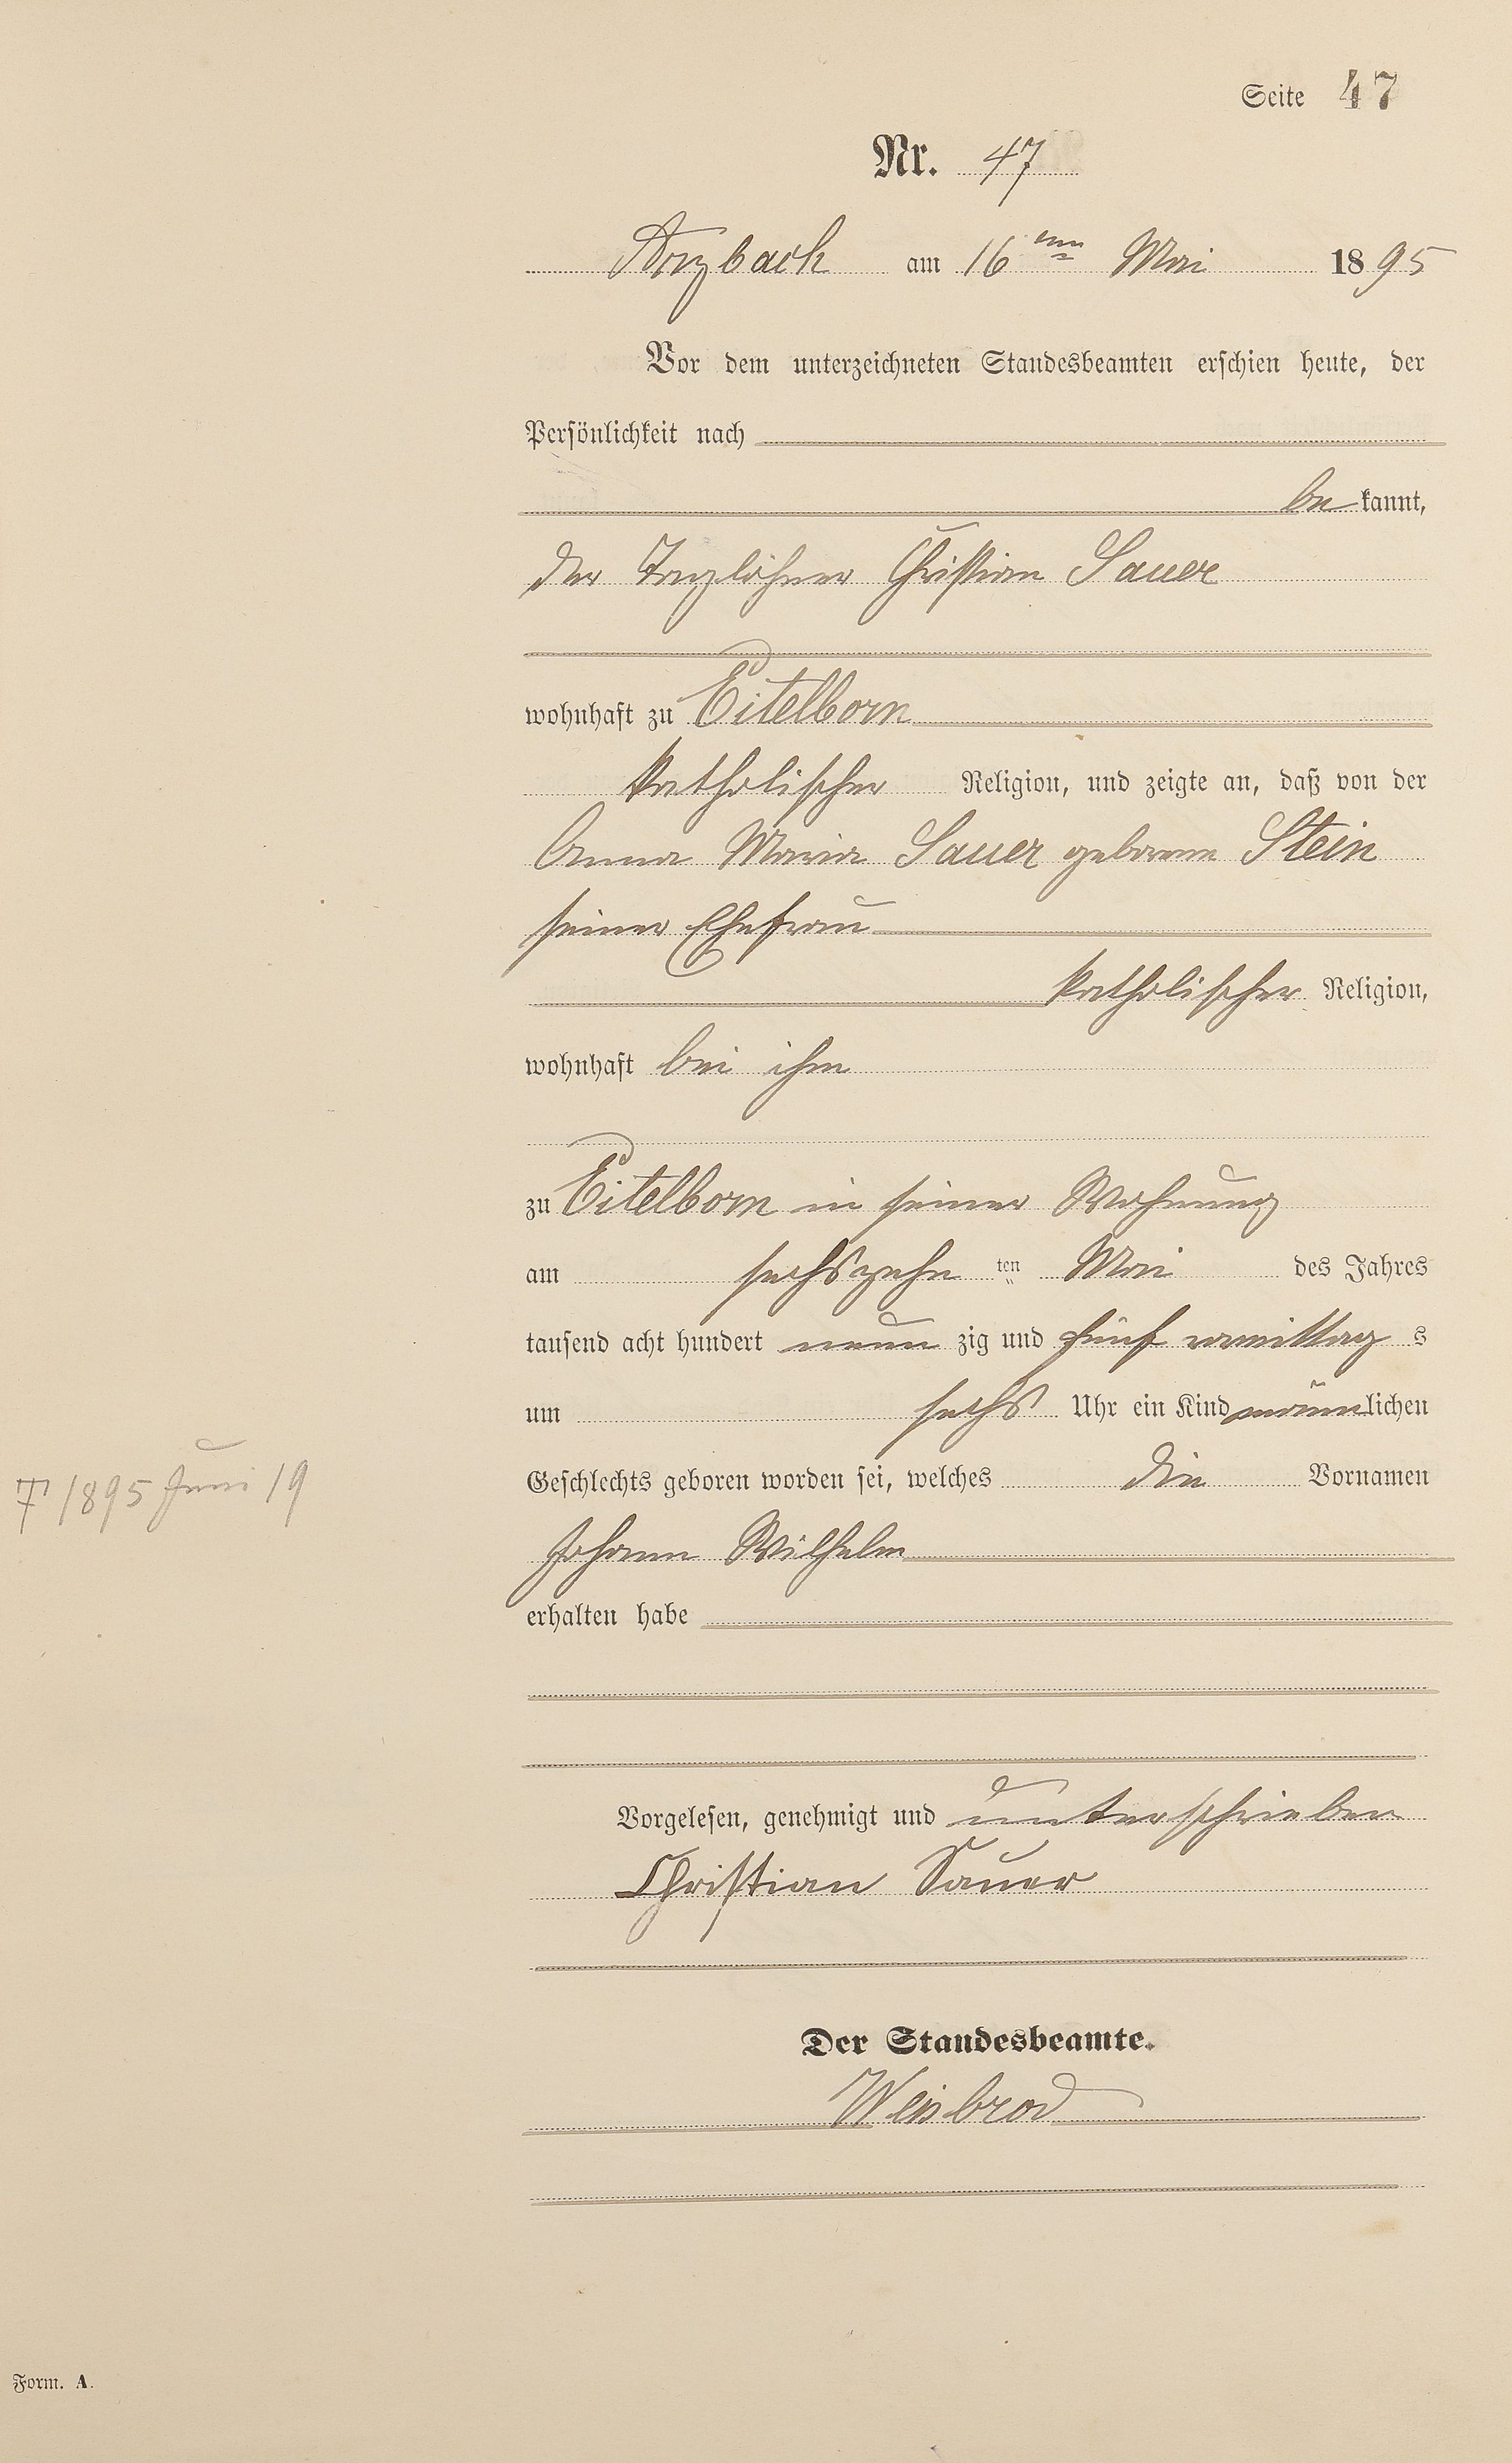 Seite 47
Nr. 47
Arzbach am 16 ten Mai 1895
Vor dem unterzeichneten Standesbeamten erschien heute, der
Persönlichkeit nach
bekannt,
der Taglöhner Christian Sauer
wohnhaft zu Eitelborn
katholischer Religion, und zeigte an, daß von der
Anna Maria Sauer geborene Stein
seiner Ehefrau
katholischer Religion,
wohnhaft bei ihm
zu Eitelborn in seiner Wohnung
am sechszehn ten Mai des Jahres
tausend acht hundert neun zig und fünf vormittag s
um sechs Uhr ein Kind männlichen
Geschlechts geboren worden sei, welches die Vornamen
† 1895 Juni 19
Johann Wilhelm
erhalten habe
Vorgelesen, genehmigt und unterschrieben
Christian Sauer
Der Standesbeamte.
Weisbrod
Form. A.